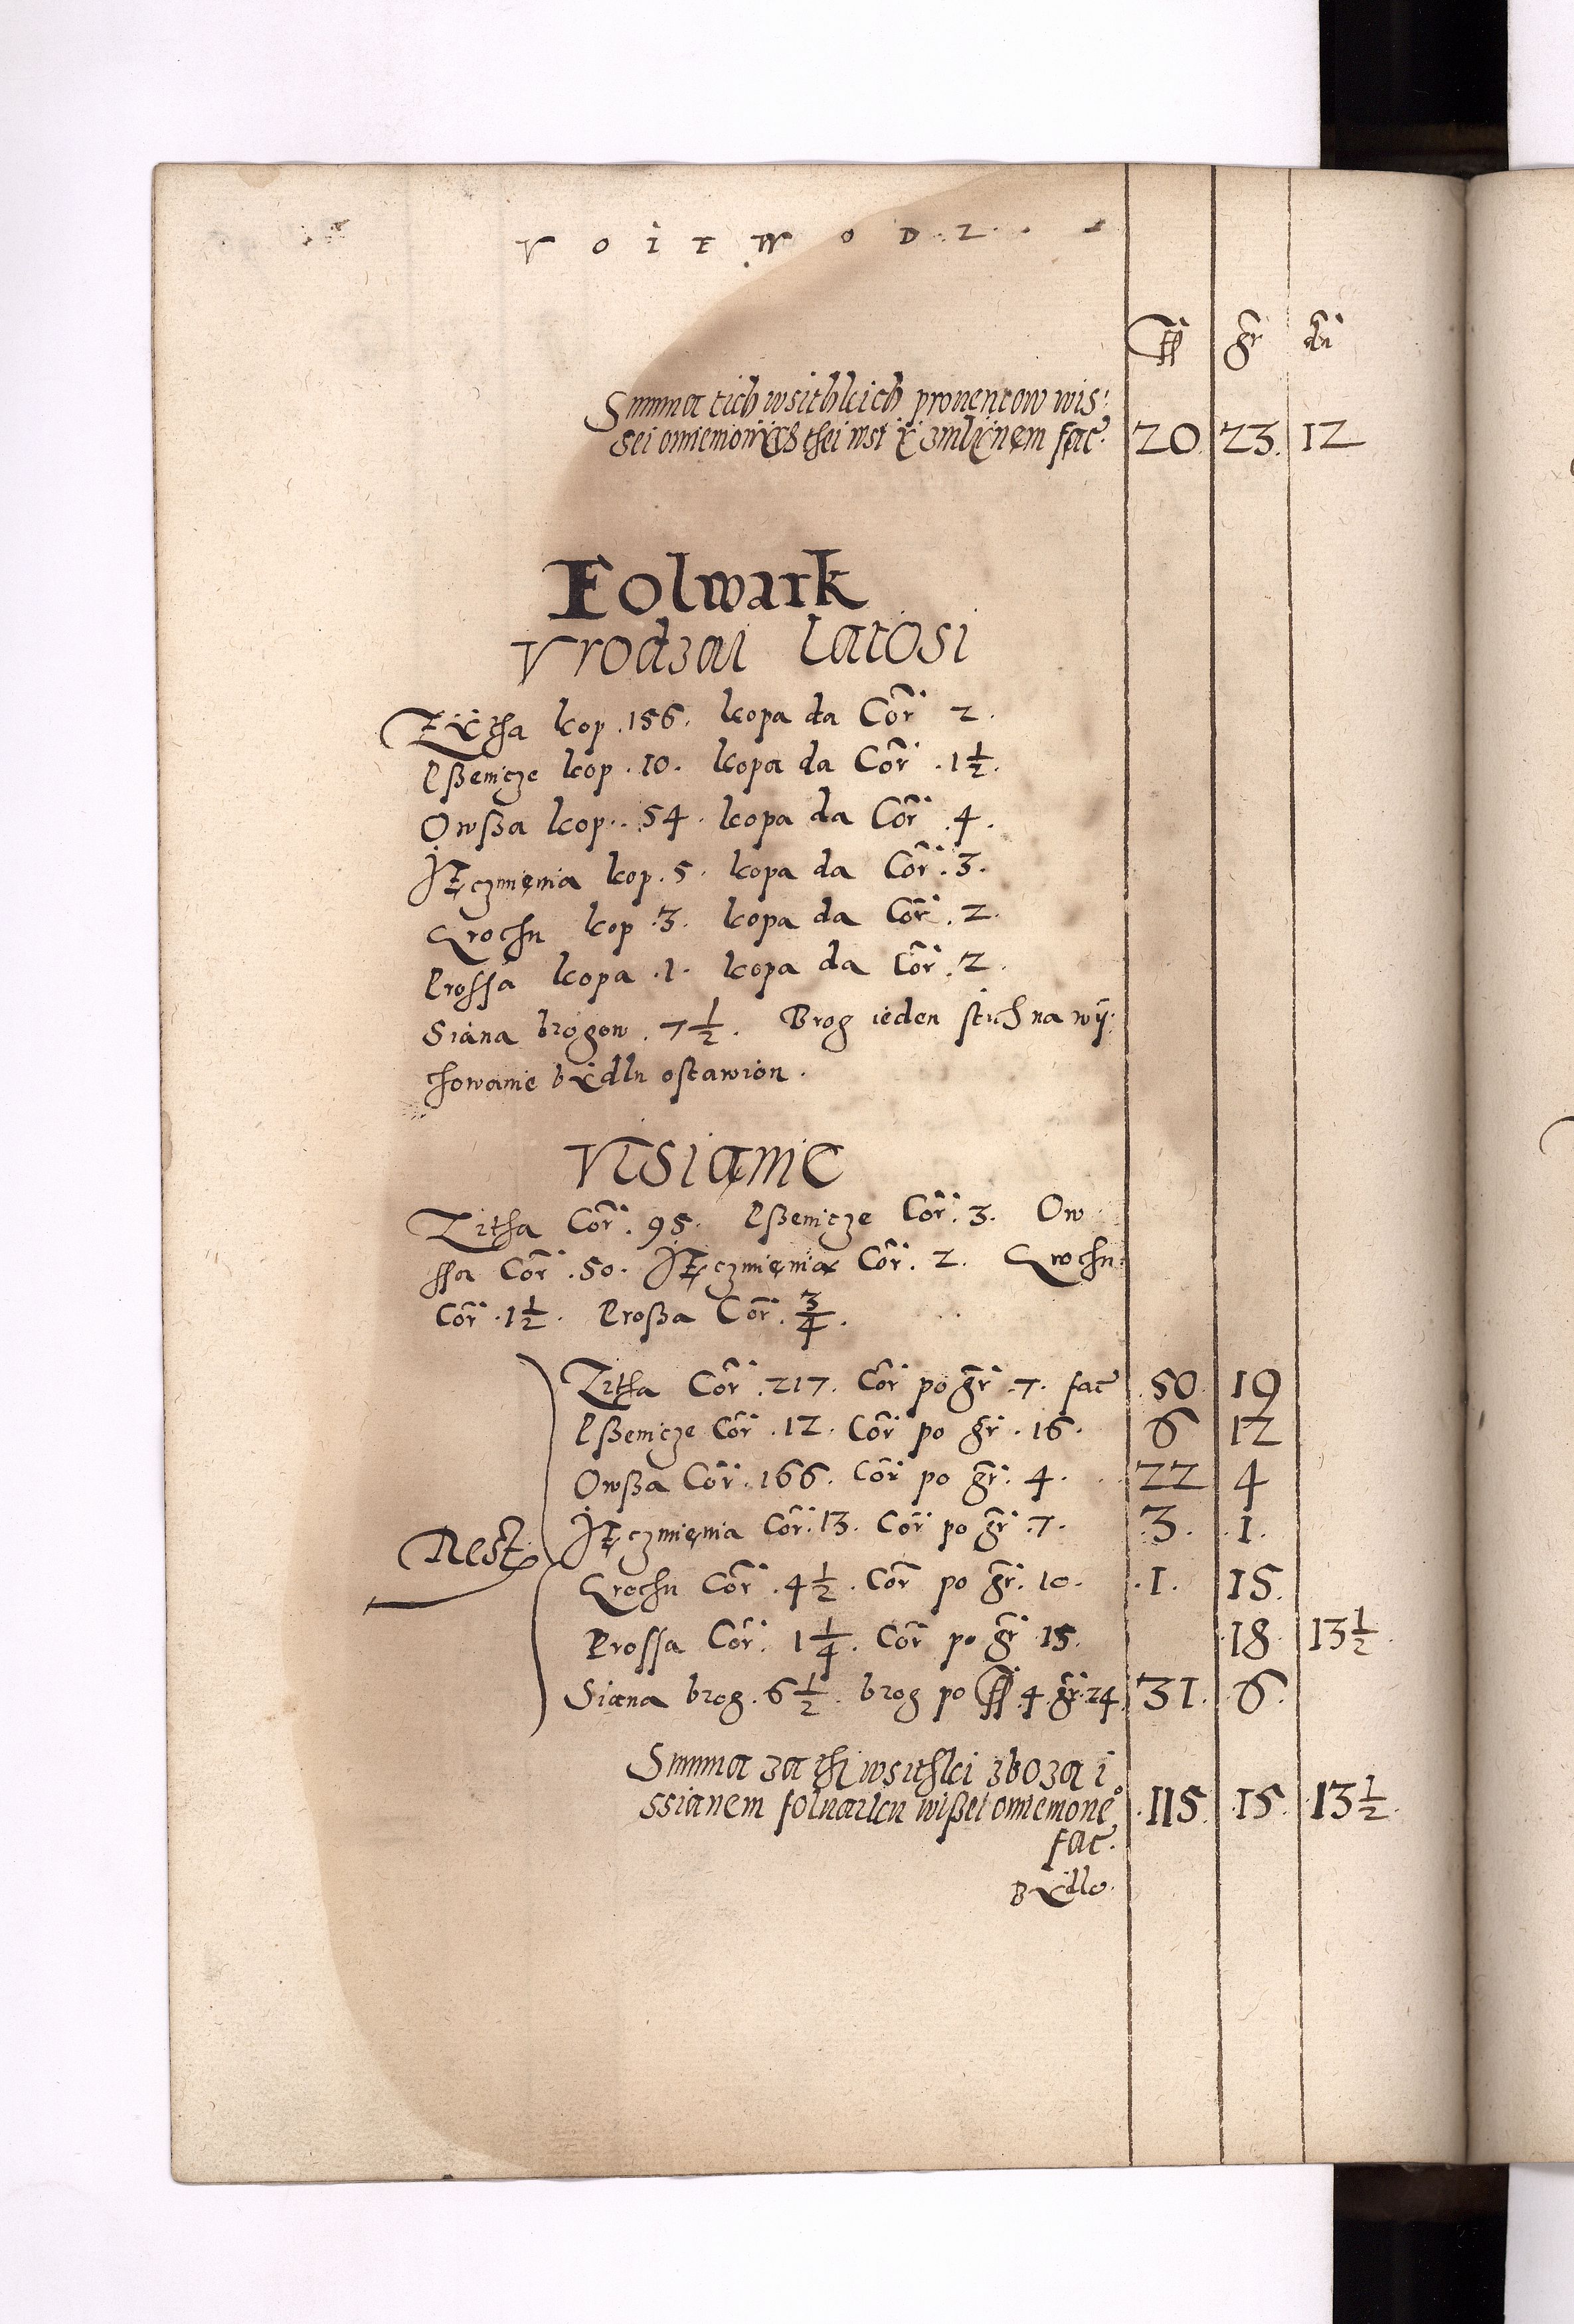 V O I E W O D Z
ff gr dn
Summa tich wsithkich prouentow wis:
sei omienionÿch thei wsi ÿ zmlÿnem fac. 20 23. 12
Folwark
Vrodzai Latosi
Zÿtha kop .156. kopa da Cor 2.
Pßenicze kop .10. kopa da Cor .1½.
Owßa kop. 54. kopa da Cor .4.
Jęczmienia kop .5. kopa da Cor .3.
Grochu kop .3. kopa da Cor .2.
Prossa kopa .1. kopa da Cor .2.
Siana brogow .7½. Brog ieden stich na wÿ:
chowanie bÿdlu ostawion.
Visianie
Zitha Cor .95. Pßenicze Cor .3. Ow
ssa Cor .50. Jęczmienia Cor .2. Grochu
Cor .1½. Proßa Cor .¾.
Rest
Zitha Cor .217. Cor po gr .7. fac .50. 19
Pßenicze Cor .12. Cor po gr .16. 6 12
Owßa Cor .166. Cor po gr .4. 22 4
Jęczmienia Cor .13. Cor po gr .7. .3. .1.
Grochu Cor .4½. Cor po gr .10. .1. 15
Prossa Cor .1¼. Cor po gr 15. .18. 13½.
Siana brog .6½. brog po ff .4. gr .24. 31. .6.
Summa za thi wsithki zboza i
ssianem folwarku wißei omienione
fac. .115. .15. .13½.
Bÿdlo.